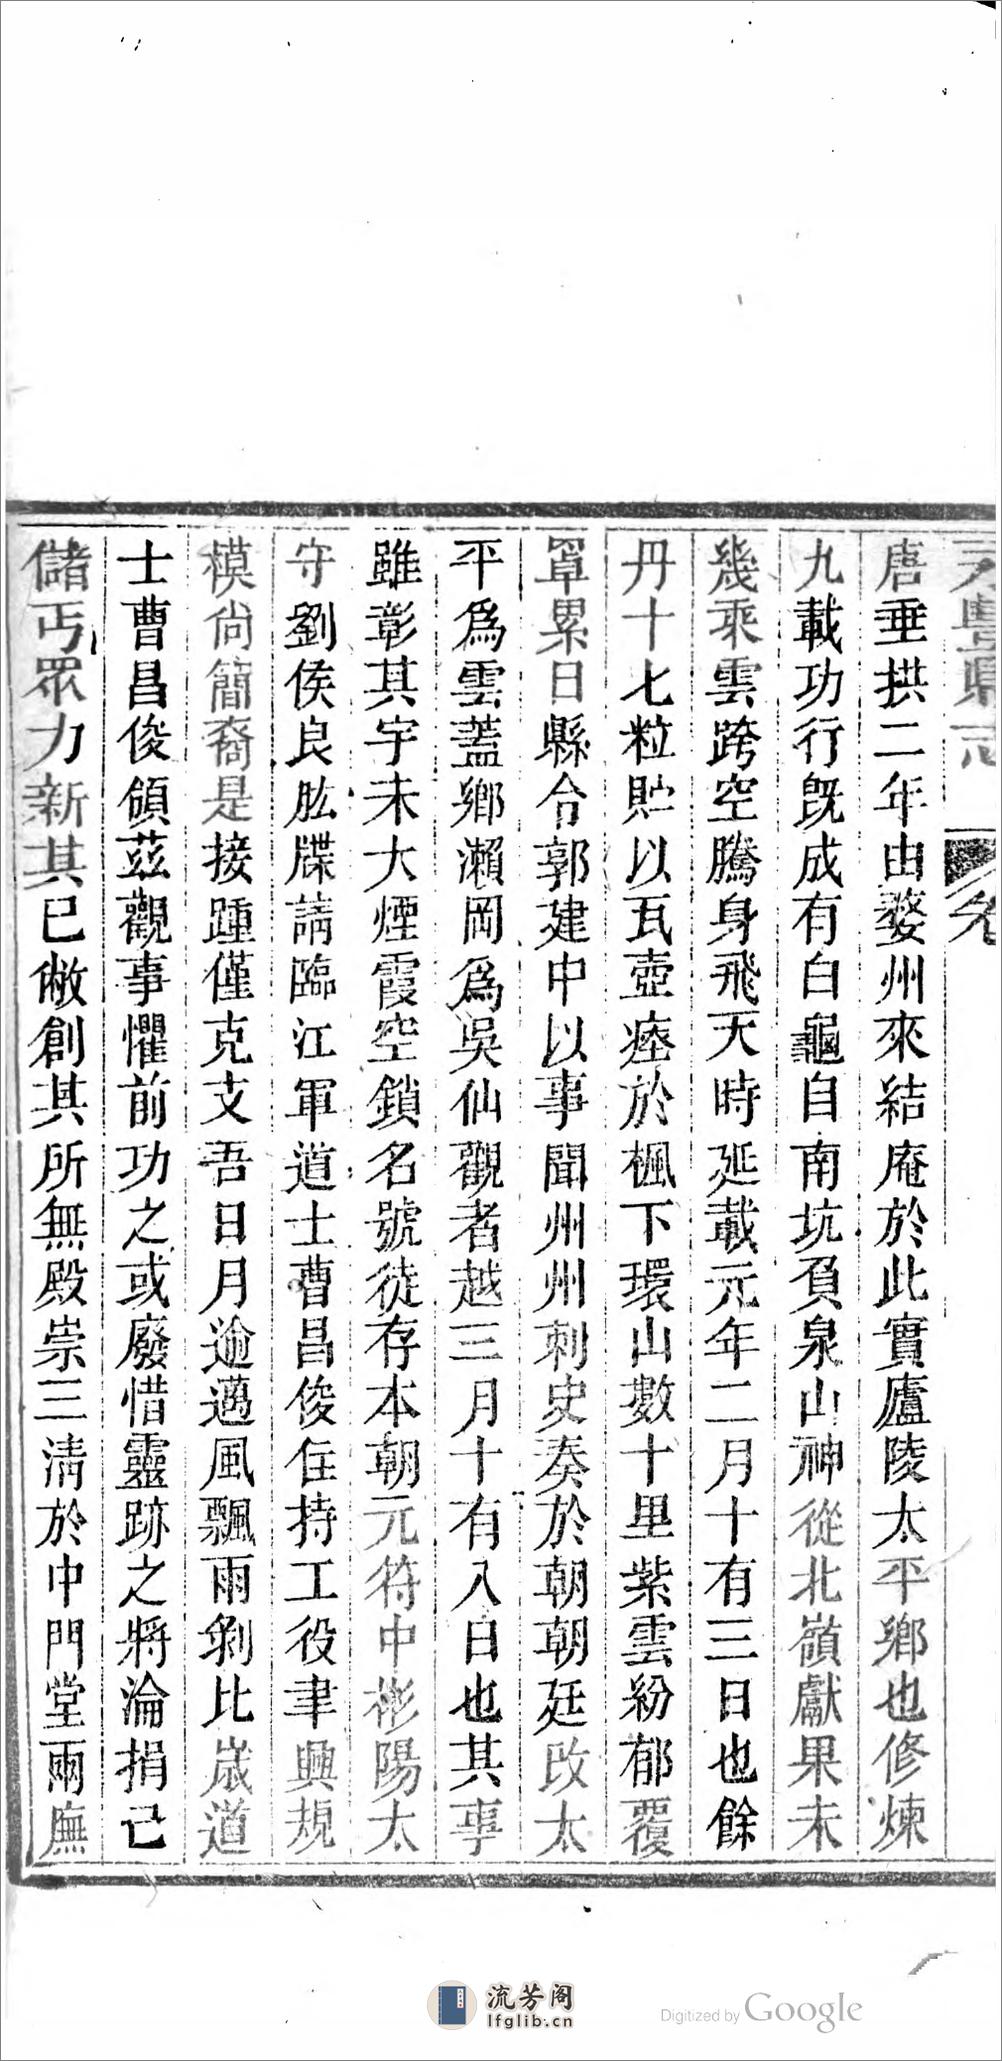 永豐縣志 卷
唐垂拱二年由婺州來結庵於此實廬陵太平鄉也修煉
九載功行旣成有白龜自南坑負泉山神從北嶺獻果未
幾乘雲跨空騰身飛天時延載元年二月十有三日也餘
丹十七粒貯以瓦壺瘞於楓下環山數十里紫雲紛郁覆
罩累日縣令郭建中以事聞州州刺史奏於朝朝廷改太
平爲雲蓋鄉瀨岡爲吳仙觀者越三月十有入日也其事
雖彰其宇未大煙霞空鎖名號徒存本朝元符中彬陽太
守劉侯良肱牒請臨江軍道士曹昌俊住持工役聿興規
模尙簡裔是接踵僅克支吾日月逾邁風飄雨剝比歲道
士曹昌俊領茲觀事懼前功之或廢惜靈跡之將淪捐己
儲丐眾力新其已敝創其所無殿崇三淸於中門堂兩廡
流芳阁
lfglib.cn
Digitized by Google